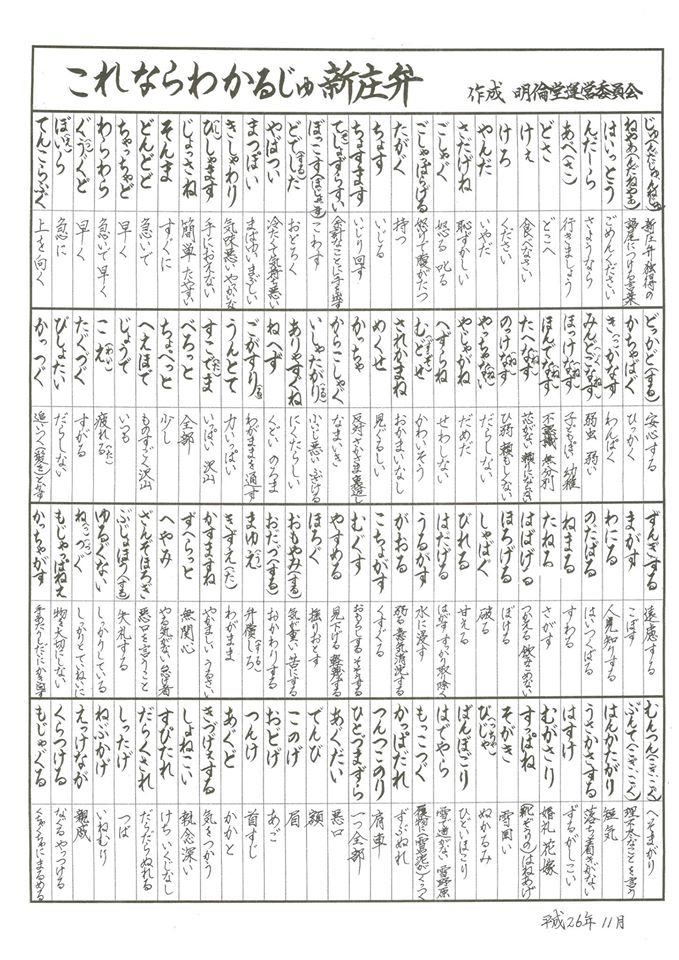 これならわかるじゅ新庄弁
作成 明倫堂運営委員会
新庄弁独得の語尾につける言葉
はいっとう ごめんください
んだしーら さようなら
あべ(さこ) 行きましょう
どさ どこへ
けぇ 食べなさい
けろ ください
やんだ いやだ
さだげね 恥ずかしい
ごしゃぐ 怒る 叱る
ごしゃばらげる 怒りて腹がたつ
たがぐ 持つ
ちょす いじる
ちょすます いじり回す
余計なことに手を出す
こわす
どでした(する) おどろく
やばつい 冷たくて気持ち悪い
まつぽい まばゆい まぶしい
きしゃわり 気味悪い いやがな
ひしゃます 手におえない
じょっさね 簡単 たやすい
そんま すぐに
どんどど 急いで
ちゃっちゃど 早く
わらわら 急いで 早く
ぐうぐど 早く
ぼいら 急に
てんこらぶぐ 上を向く
どっかど(する) 安心する
かちゃばぐ ひっかく
き(こ)かなす わんぱく
みんどごなす 弱虫 弱い
ほっけなす 子どもっぽい 幼稚
ほんてなす 不認識 無分別
たへなす 芯がない 頼りにならない
のっけなす ひ弱 頼もしくない
やっちゃない だらしない
やじゃがね だめだ
へずらね せわしない
むどせ かわいそう
されかまね おかまいなし
めくせ 見ぐるしい
かっちゃ 反対 さかさま 裏返し
からこしゃぐ なまいき
いしゃたがり 小さい 悪い ふざける
ありゃすぐね にくたらしい
ねへず くどい のろま
ごがすり わがままを通す
うんとて 力いっぱい
すこでま いっぱい 沢山
べろっと 全部
ちょべっと 少し
へえほで ものすごく 沢山
じょうで いつも
こえ 疲れる
たぐづぐ すがる
びしょたい だらしない
かっつぐ 追いつく
ずんぎ(する) 遠慮する
まがす こぼす
わにる 人見知りする
のたばる はいつくばる
ねまる すわる
たねる さがす
はばげる つかえる 飲みこめない
ほろげる ぼける
しゃばぐ 破る
びれる 甘える
はだげる はがす すっかり取り除く
うるかす 水に浸す
がおる 弱る 意気消沈する
こちょがす くすぐる
むぐす おもらしする そそうする
やすめる 見下げる 軽蔑する
ほろぐ 振りおとす
おもやみ(する) 気が重い 苦にする
おだづ(する) おかわりする
まゆえ 弁償しろ
きずえ(だ) わがまま
かすますね やかましい うるさい
ずへらっと 無関心
へやみ やる気がない 怠け者
ざんぞほろぎ 悪口を言うこと
ぶじょほう(する) 失礼する
ゆるぐない しっかりしている
ね(っ)づぐ しっかりとていねいに
もじゃっぱねえ 物を大切にしない
かっちゃがす
むんつん(こぎ・こく) へそまがり
ぶんて(こぎ・こく) 理不尽なことを言う
はんかたがり 短気
うさかさする 落ち着きがない
はすけ ずるがしこい
むがさり 婚礼 花嫁
すっぱね
そがき 雪囲い
びっちゃ ぬかるみ
ばんぼごり ひどいほこり
はでやら 雪で道がない 雪野原
もっこつぐ
かっぱだれ ずぶぬれ
つんつこのり 肩車
ひとつまずら 一つ全部
あぐだい 悪口
でんび 額
このげ 眉
おどげ あご
つんけ 首すじ
あぐど かかと
きづげえする 気をつかう
しょねこい 執念深い
すびたれ けち いくじなし
だらくされ だらだらぬれる
しったげ つば
ねぶかげ いねむり
えっけなが 親戚
くらつける なぐる やっつける
もじゃぐる くちゃくちゃにまるめる
平成26年 11月